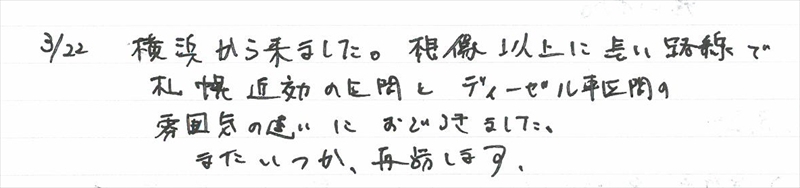 3/22 横浜から来ました。想像以上に長い路線で
札幌近効の区間とディーゼル車区間の
雰囲気の違いにおどろきました。
またいつか、再訪します.